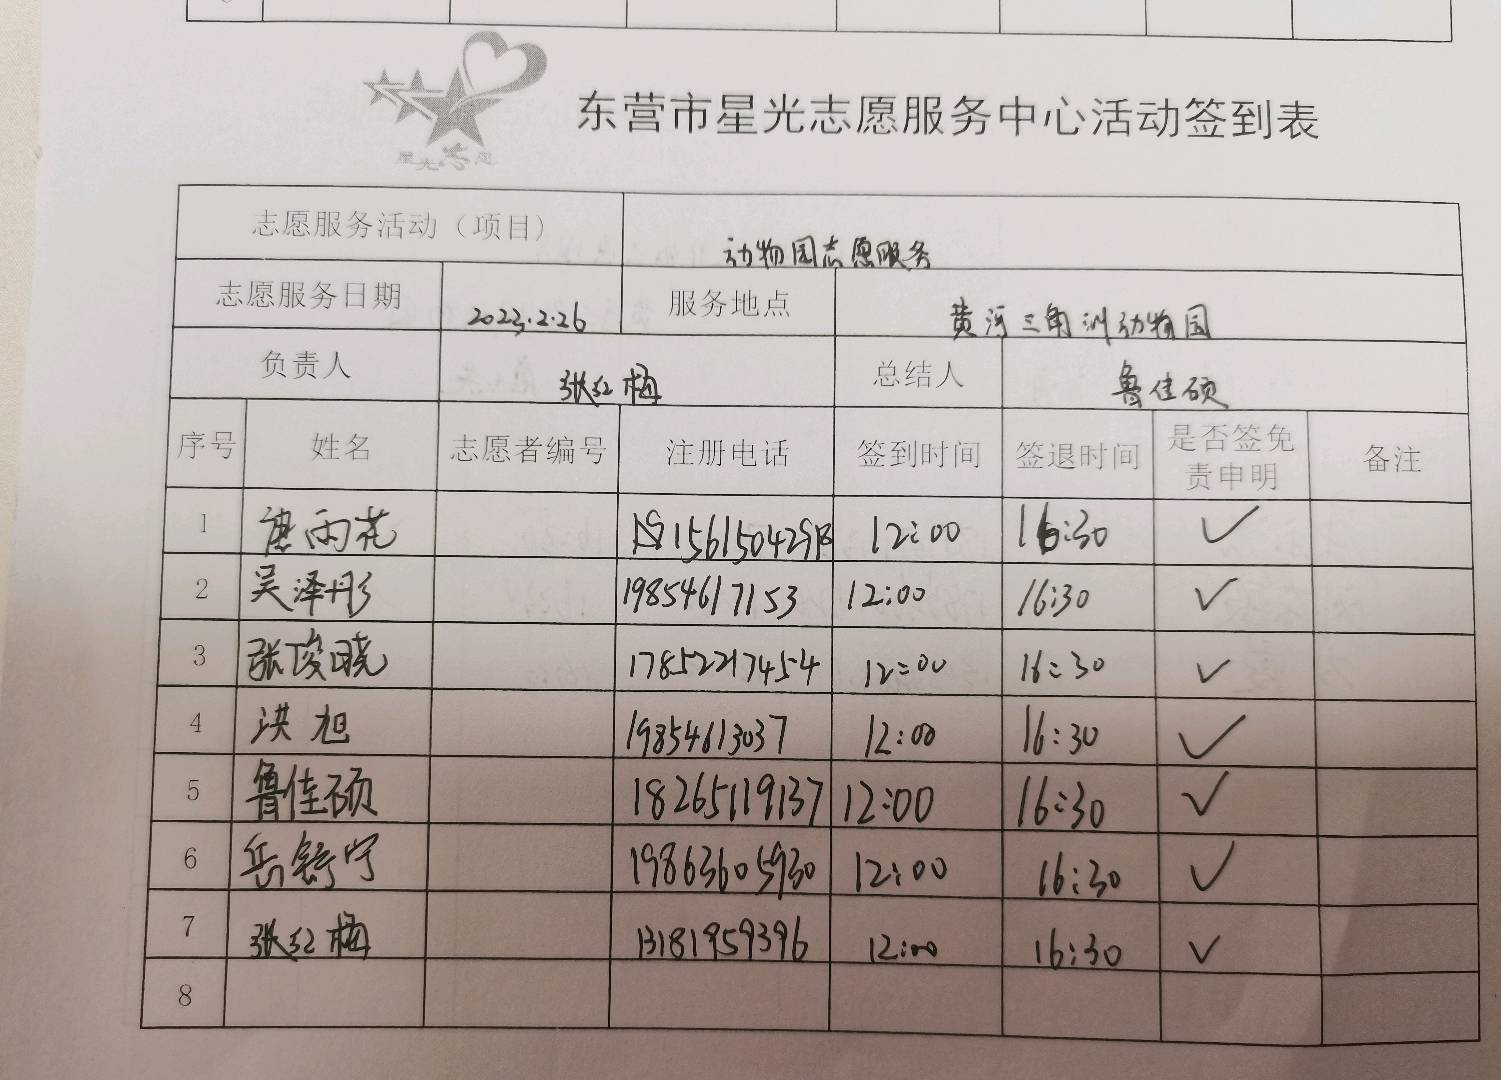 星光志愿
东营市星光志愿服务中心活动签到表
志愿服务活动（项目） 动物园志愿服务
志愿服务日期 2023.2.26 服务地点 黄河三角洲动物园
负责人 张红梅 总结人 鲁佳硕
序号 姓名 志愿者编号 注册电话 签到时间 签退时间 是否签免责申明 备注
1 唐雨花 12:00 16:30 ✓
2 吴泽彤 19854617153 12:00 16:30 ✓
3 张俊晓 17852217454 12:00 16:30 ✓
4 洪旭 19854613037 12:00 16:30 ✓
5 鲁佳硕 18265119137 12:00 16:30 ✓
6 岳舒宁 19863605930 12:00 16:30 ✓
7 张红梅 13181959396 12:00 16:30 ✓
8